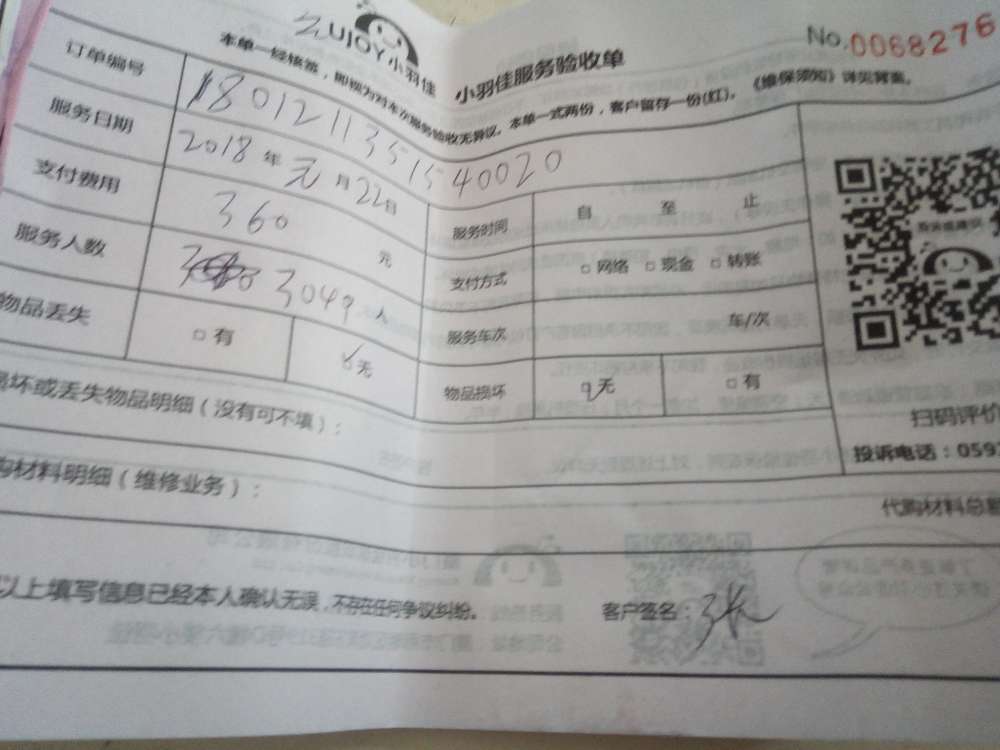 ZUJOY小羽佳 小羽佳服务验收单
No.0068276
本单一经核签，即视为对本次服务验收无异议。本单一式两份，客户留存一份(红)。《维保须知》详见背面。
订单编号 180121135154 0020
服务日期 2018年元月22日 服务时间 自 至 止
支付费用 360 元 支付方式 □网络 □现金 □转账
服务人数 3049 人 服务车次 车/次
物品丢失 □有 □无 物品损坏 □无 □有
坏或丢失物品明细（没有可不填）：
扫码评价
投诉电话：059
购材料明细（维修业务）：
代购材料总
以上填写信息已经本人确认无误，不存在任何争议纠纷。 客户签名：张